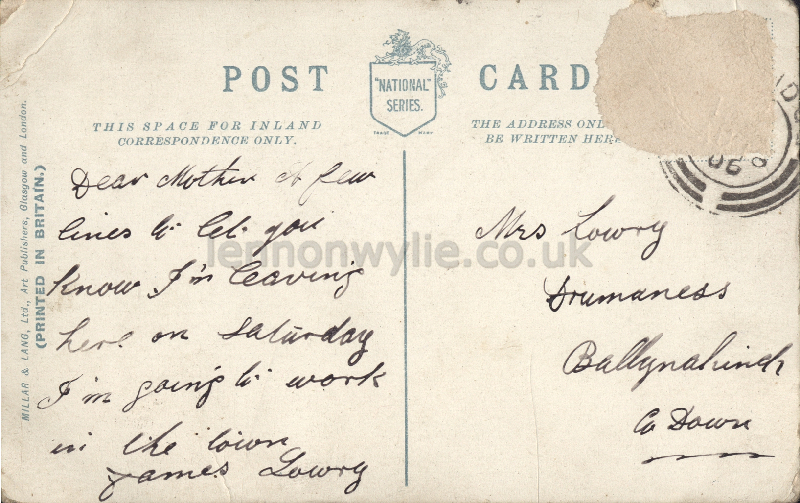 POST CARD
"NATIONAL"
SERIES.
TRADE MARK
THIS SPACE FOR INLAND
CORRESPONDENCE ONLY.
THE ADDRESS ONL
BE WRITTEN HERE
MILLAR & LANG, Ltd., Art Publishers, Glasgow and London.
(PRINTED IN BRITAIN.)
Dear Mother A few
lines to let you
know I'm leaving
here on Saturday
I'm going to work
in the town
James Lowry
Mrs Lowry
Drumaness
Ballynahinch
Co Down
06
lennonwylie.co.uk